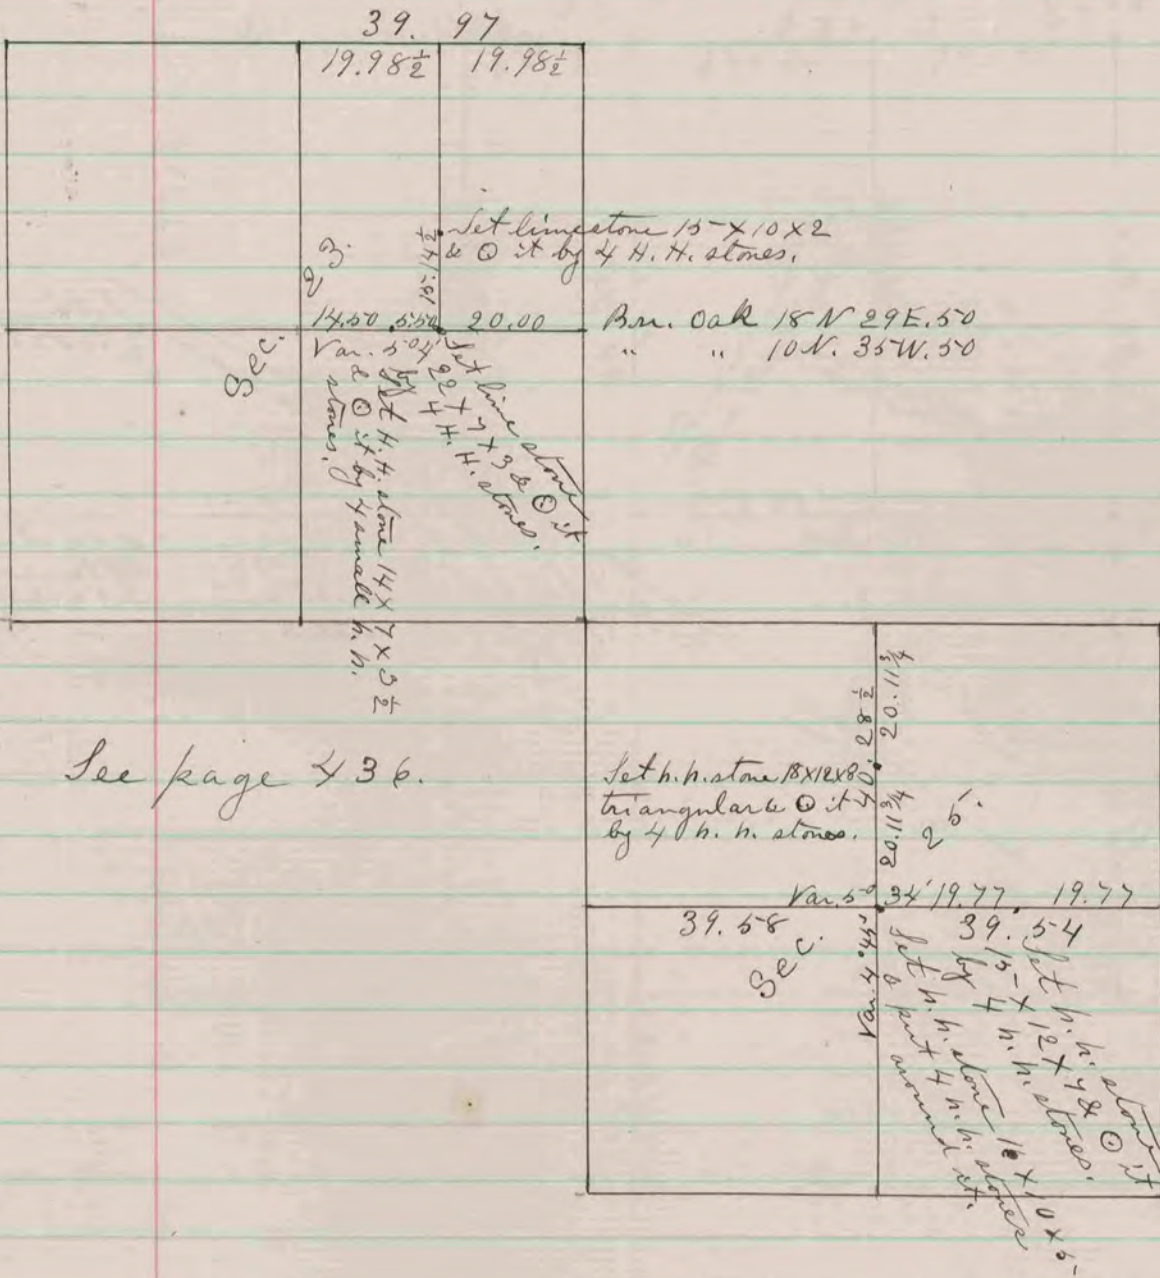 39. 97
19.98½ 19.98½
Set limestone 15-X10X2
& ⊙ it by 4 H. H. stones.
23.
14.50 5.50 20.00
Bur. Oak 18 N 29E.50
" " 10N. 35W.50
Sec.
Var. 5° 4'
Set lime stone
22 X 7 X 3 & ⊙ it
by 4 H. H. stones.
Set H. H. stone 14 X 7 X 3½
& ⊙ it by 4 small h. h.
stones.
See page 436.
40. 28½
20.11¾
20.11¾
Set h. h. stone 18X12X8
triangular & ⊙ it
by 4 h. h. stones.
25.
Var. 5° 34' 19.77 19.77
39.58 39.54
Sec.
Set h. h. stone
15-X12X7 & ⊙ it
by 4 h. h. stones.
Set h. h. stone 16 X 10 X 5-
& put 4 h. h. stones
around it.